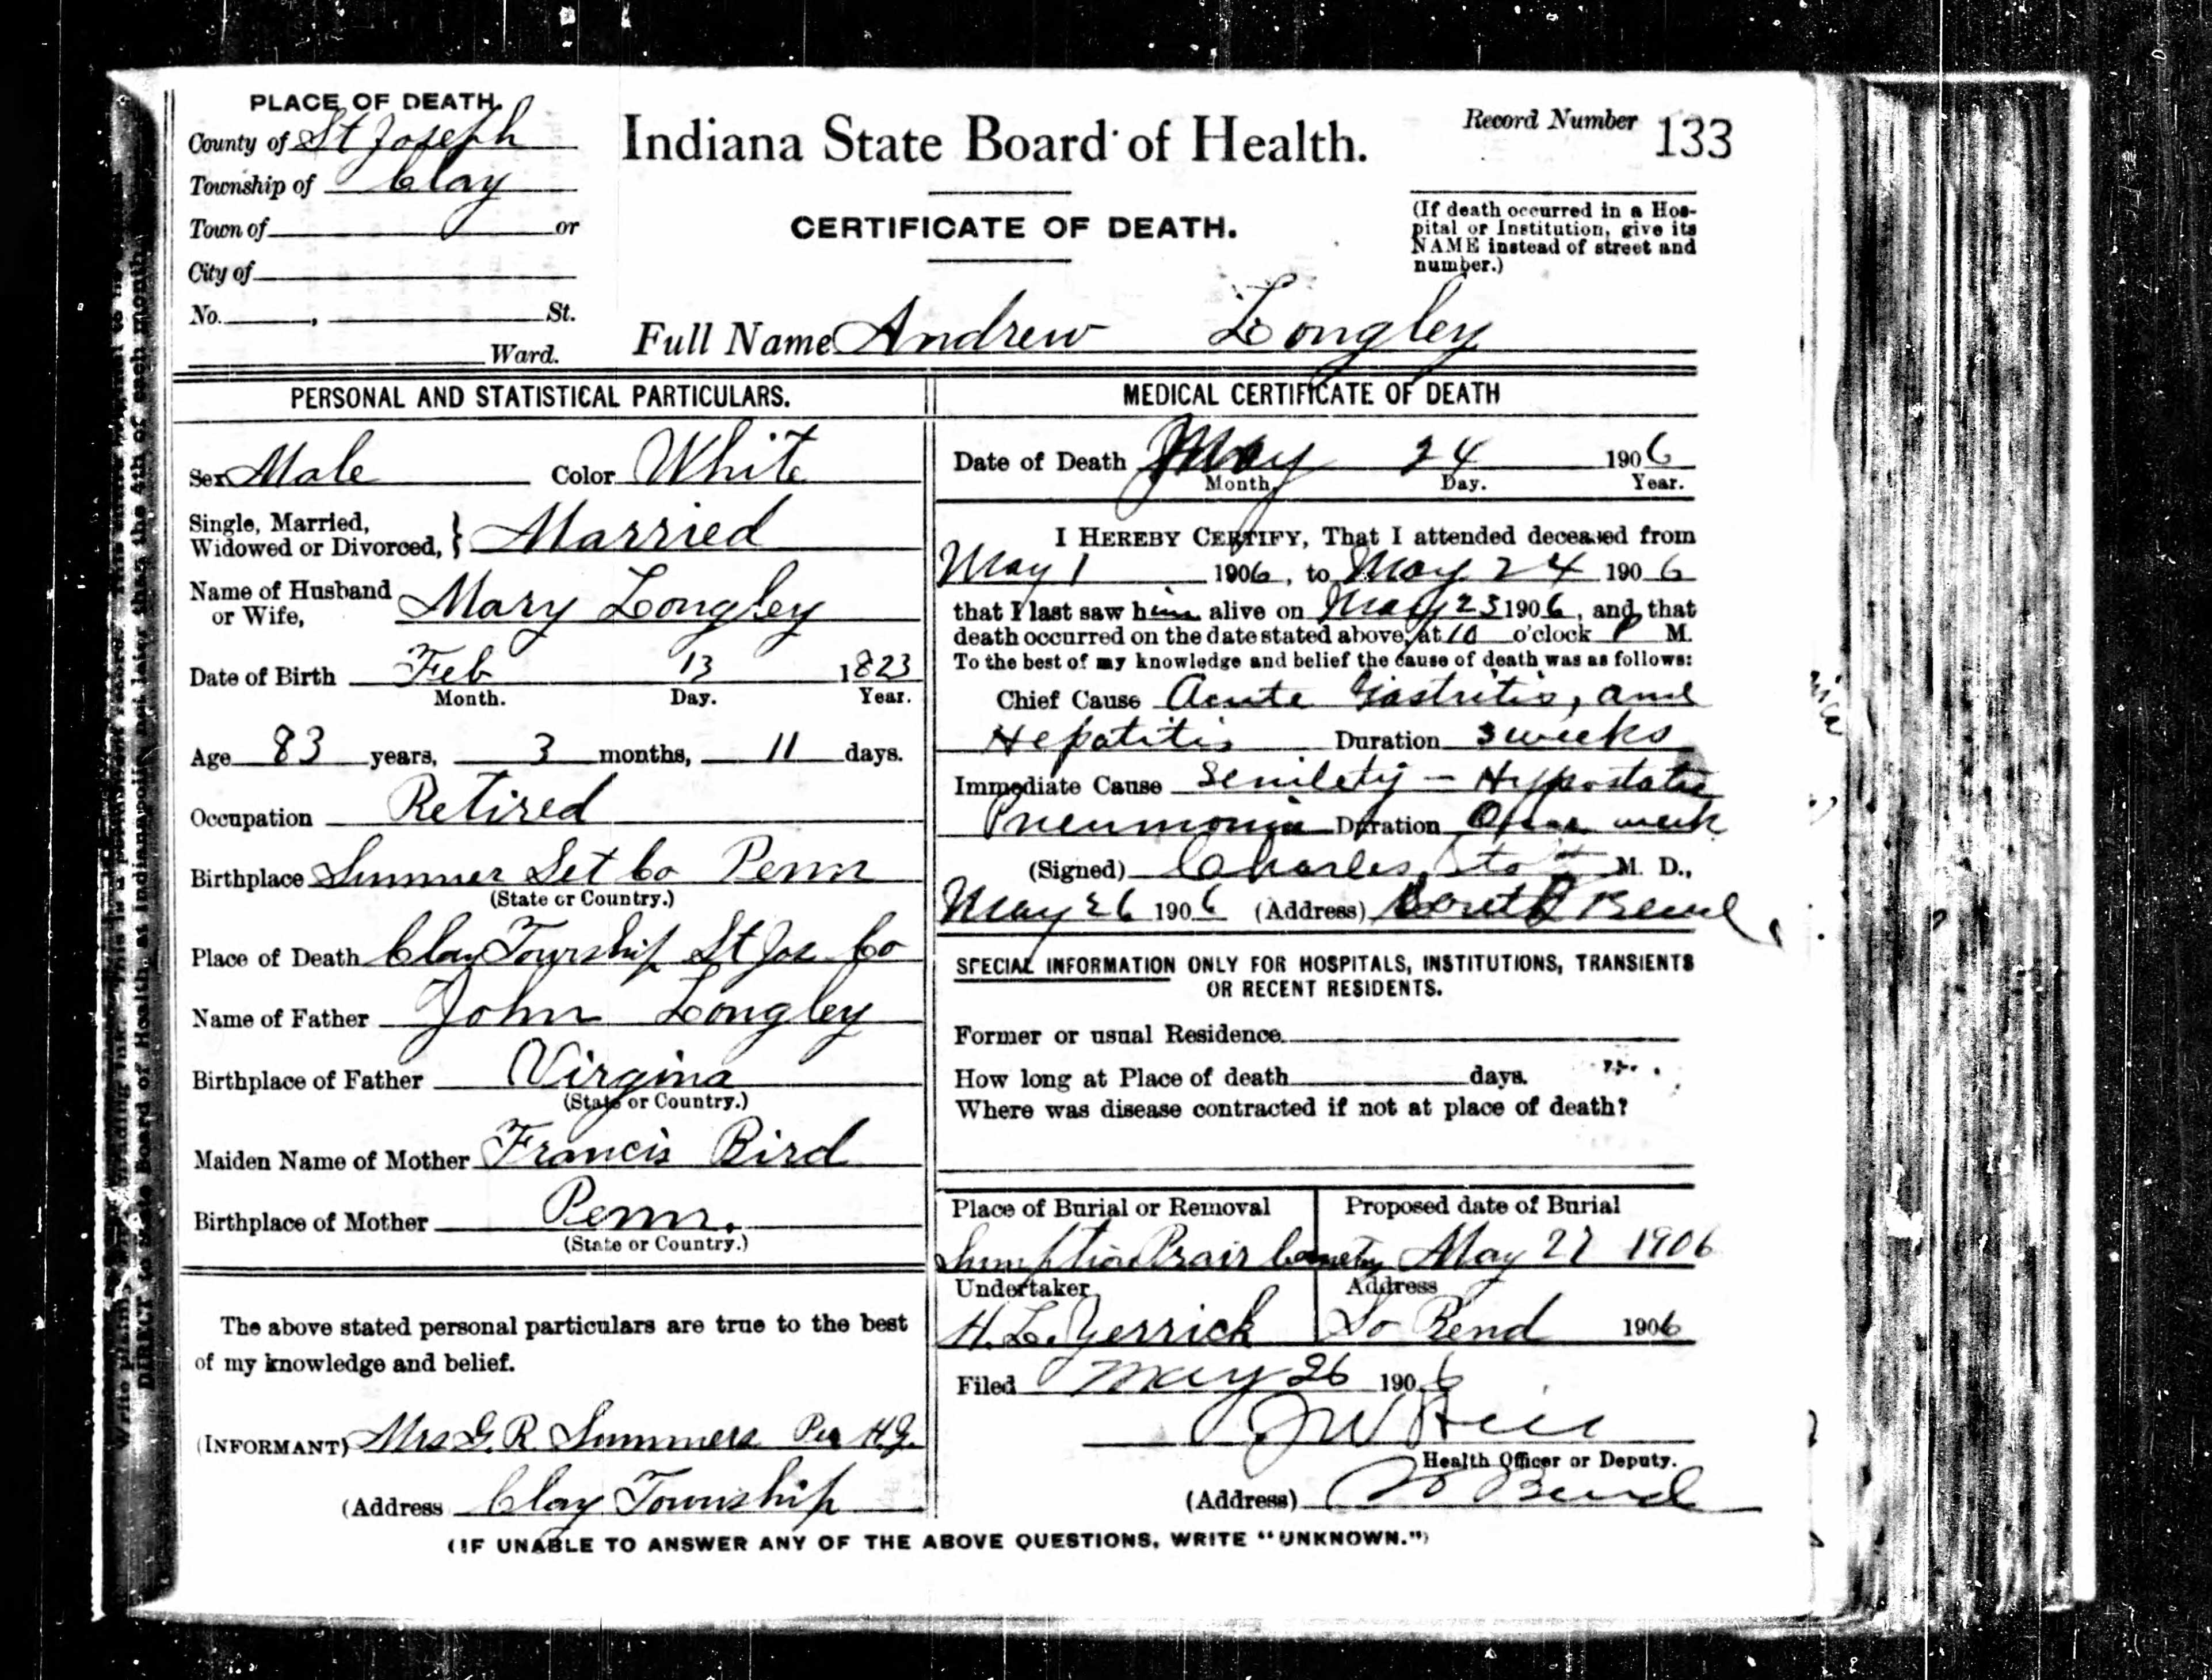 PLACE OF DEATH.
County of St Joseph
Township of Clay
Town of or
City of
No. , St.
Ward.
Indiana State Board of Health.
CERTIFICATE OF DEATH.
Record Number 133
(If death occurred in a Hos-
pital or Institution, give its
NAME instead of street and
number.)
Full Name Andrew Longley
PERSONAL AND STATISTICAL PARTICULARS.
Sex Male Color White
Single, Married,
Widowed or Divorced, } Married
Name of Husband
or Wife, Mary Longley
Date of Birth Feb 13 1823
Month. Day. Year.
Age 83 years, 3 months, 11 days.
Occupation Retired
Birthplace Summer Set Co Penn
(State or Country.)
Place of Death Clay Township St Jos Co
Name of Father John Longley
Birthplace of Father Virgina
(State or Country.)
Maiden Name of Mother Francis Bird
Birthplace of Mother Penn.
(State or Country.)
The above stated personal particulars are true to the best
of my knowledge and belief.
(INFORMANT) Mrs G. R. Summers Per H.Y.
(Address Clay Township
MEDICAL CERTIFICATE OF DEATH
Date of Death May 24 1906
Month, Day. Year.
I HEREBY CERTIFY, That I attended deceased from
May 1 1906, to May 24 1906
that I last saw him alive on May 23 1906, and that
death occurred on the date stated above, at 10 o'clock P M.
To the best of my knowledge and belief the cause of death was as follows:
Chief Cause Acute Gastritis, and
Hepatitis Duration 3 weeks
Immediate Cause Senility – Hypostatic
Pneumonia Duration One week
(Signed) Charles M. D.,
May 26 1906 (Address) South Bend
SPECIAL INFORMATION ONLY FOR HOSPITALS, INSTITUTIONS, TRANSIENTS
OR RECENT RESIDENTS.
Former or usual Residence.
How long at Place of death days.
Where was disease contracted if not at place of death?
Place of Burial or Removal Proposed date of Burial
Sumption Prair Cemety May 27 1906
Undertaker Address
H. L. Yerrick So Bend 1906
Filed May 26 1906
J W Hill
Health Officer or Deputy.
(Address) So Bend
(IF UNABLE TO ANSWER ANY OF THE ABOVE QUESTIONS, WRITE "UNKNOWN.")